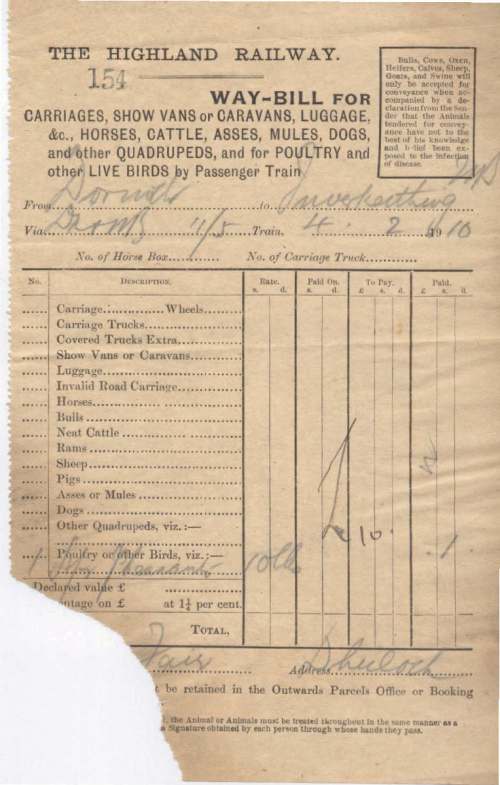 THE HIGHLAND RAILWAY.
154
Bulls, Cows, Oxen,
Heifers, Calves, Sheep,
Goats, and Swine will
only be accepted for
conveyance when ac-
companied by a de-
claration from the Sen-
der that the Animals
tendered for convey-
ance have not to the
best of his knowledge
and belief been ex-
posed to the infection
of disease.
WAY-BILL FOR
CARRIAGES, SHOW VANS or CARAVANS, LUGGAGE,
&c., HORSES, CATTLE, ASSES, MULES, DOGS,
and other QUADRUPEDS, and for POULTRY and
other LIVE BIRDS by Passenger Train
From Dornoch to Inverkeithing
Via 11/5 Train, 4. 2 1910
No. of Horse Box............ No. of Carriage Truck............
No. DESCRIPTION. Rate. Paid On. To Pay. Paid.
s. d. s. d. £ s. d. £ s. d.
Carriage............Wheels
Carriage Trucks
Covered Trucks Extra
Show Vans or Caravans
Luggage
Invalid Road Carriage
Horses
Bulls
Neat Cattle
Rams
Sheep
Pigs
Asses or Mules
Dogs
Other Quadrupeds, viz.:—
10.
Poultry or other Birds, viz.:— 1
1 Pheasants 10lbs
Declared value £
ntage on £ at 1¼ per cent.
TOTAL,
Fair Address
t be retained in the Outwards Parcels Office or Booking
, the Animal or Animals must be treated throughout in the same manner as a
a Signature obtained by each person through whose hands they pass.